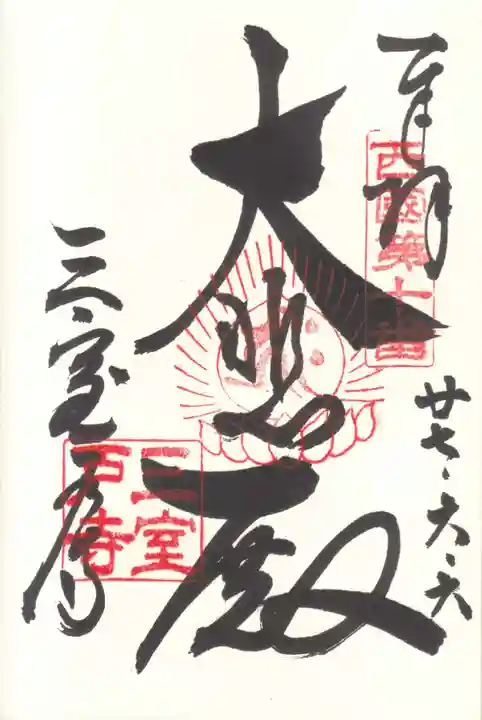 奉拝
西國第十番
廿七、六、六
大悲殿
三室戸寺
三室
戸寺